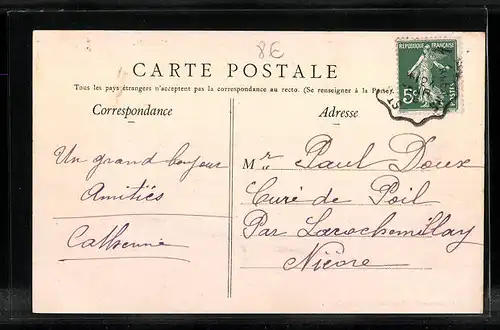 8E
CARTE POSTALE
Tous les pays étrangers n'acceptent pas la correspondance au recto. (Se renseigner à la Poste).
Correspondance
Adresse
RÉPUBLIQUE FRANÇAISE
5c
POSTES
Un grand bonjour
Amitiés
Catherine
Mr Paul Doux
Curé de Poil
Par Larochemillay
Nièvre